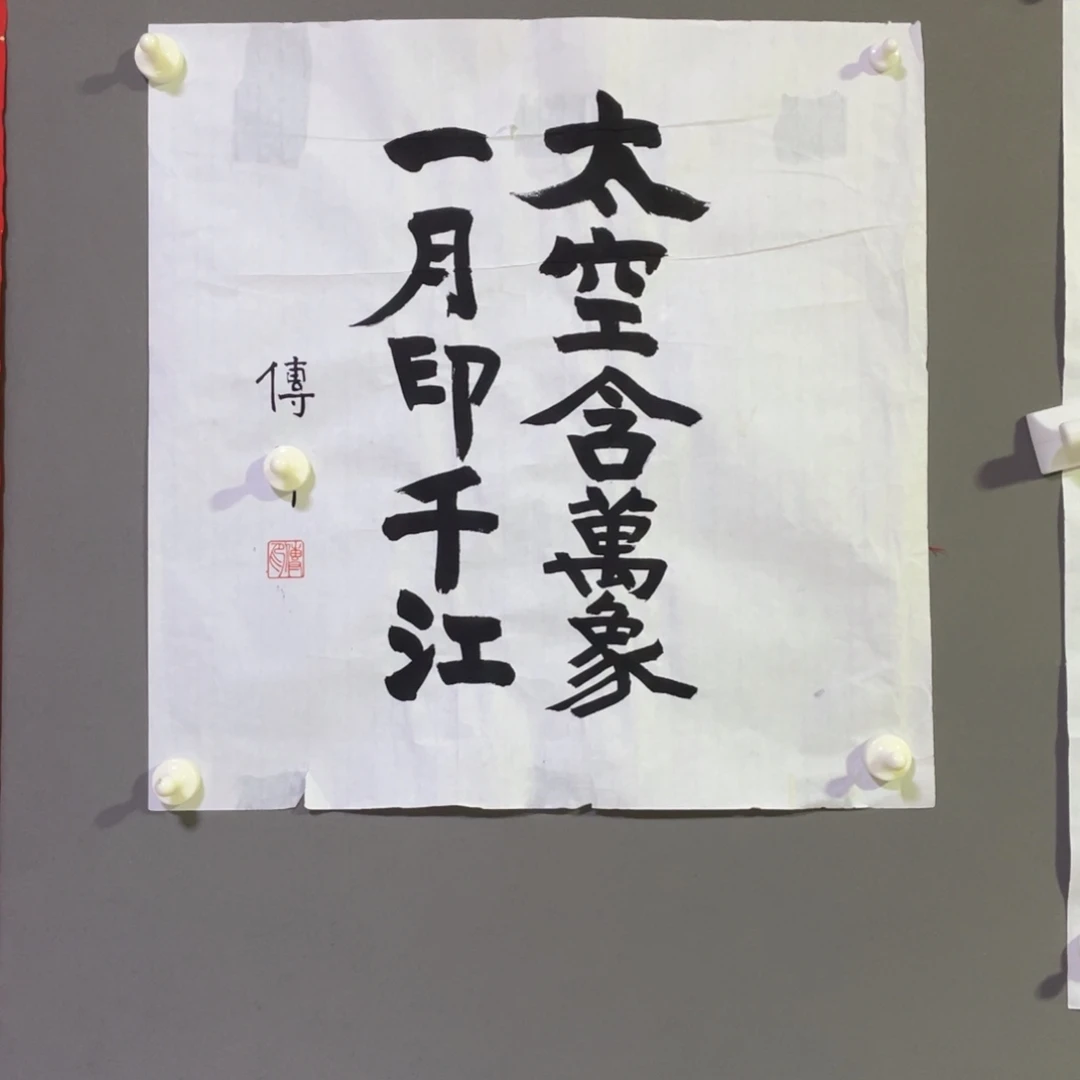 太空含萬象
一月印千江
傳